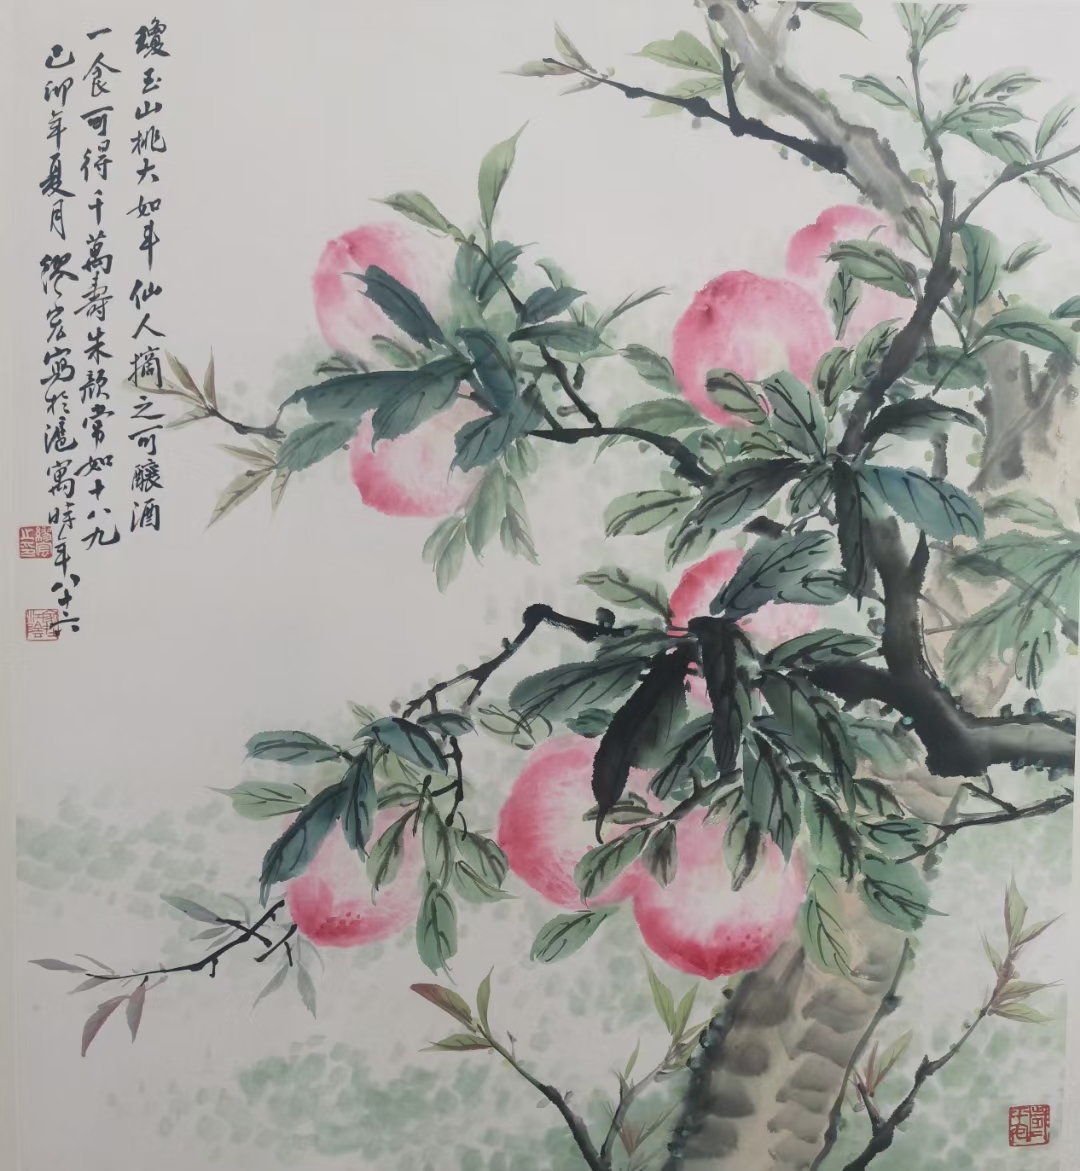 瓊玉山桃大如斗仙人摘之可釀酒
一食可得千萬壽朱顏常如十八九
己卯年夏月繆宏寫於滬寓時年八十六